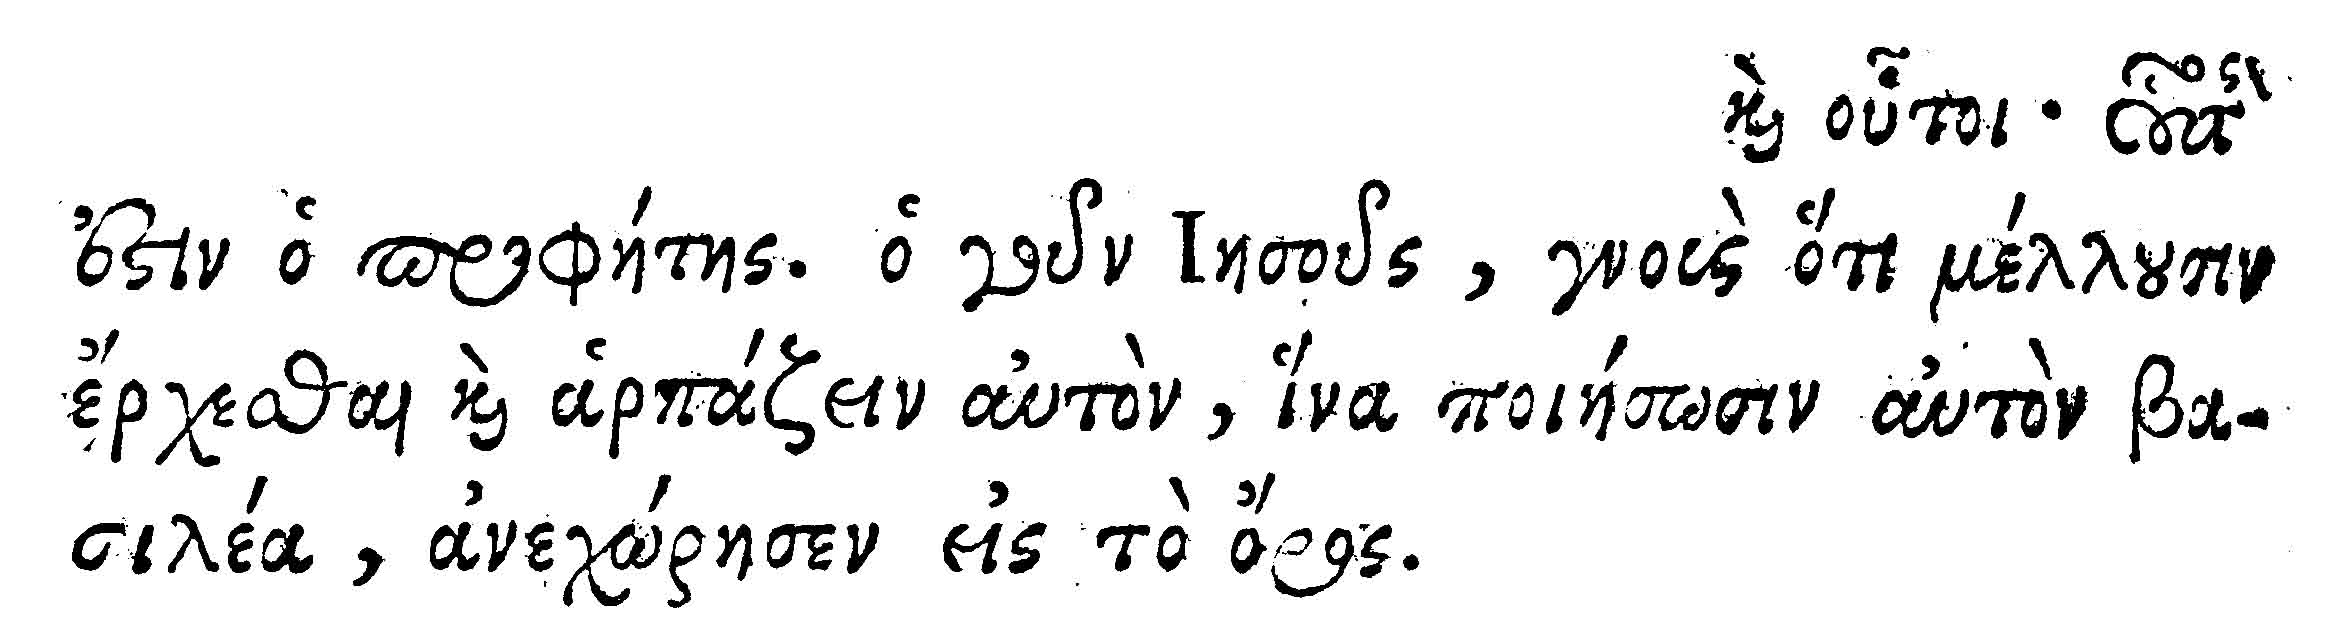 καὶ οὗτοι·
ἐστιν ὁ προφήτης. ὁ γοῦν Ιησοῦς, γνοὺς ὅτι μέλλουσιν
ἔρχεσθαι καὶ ἁρπάζειν αὐτὸν, ἵνα ποιήσωσιν αὐτὸν βα-
σιλέα, ἀνεχώρησεν εἰς τὸ ὄρος.